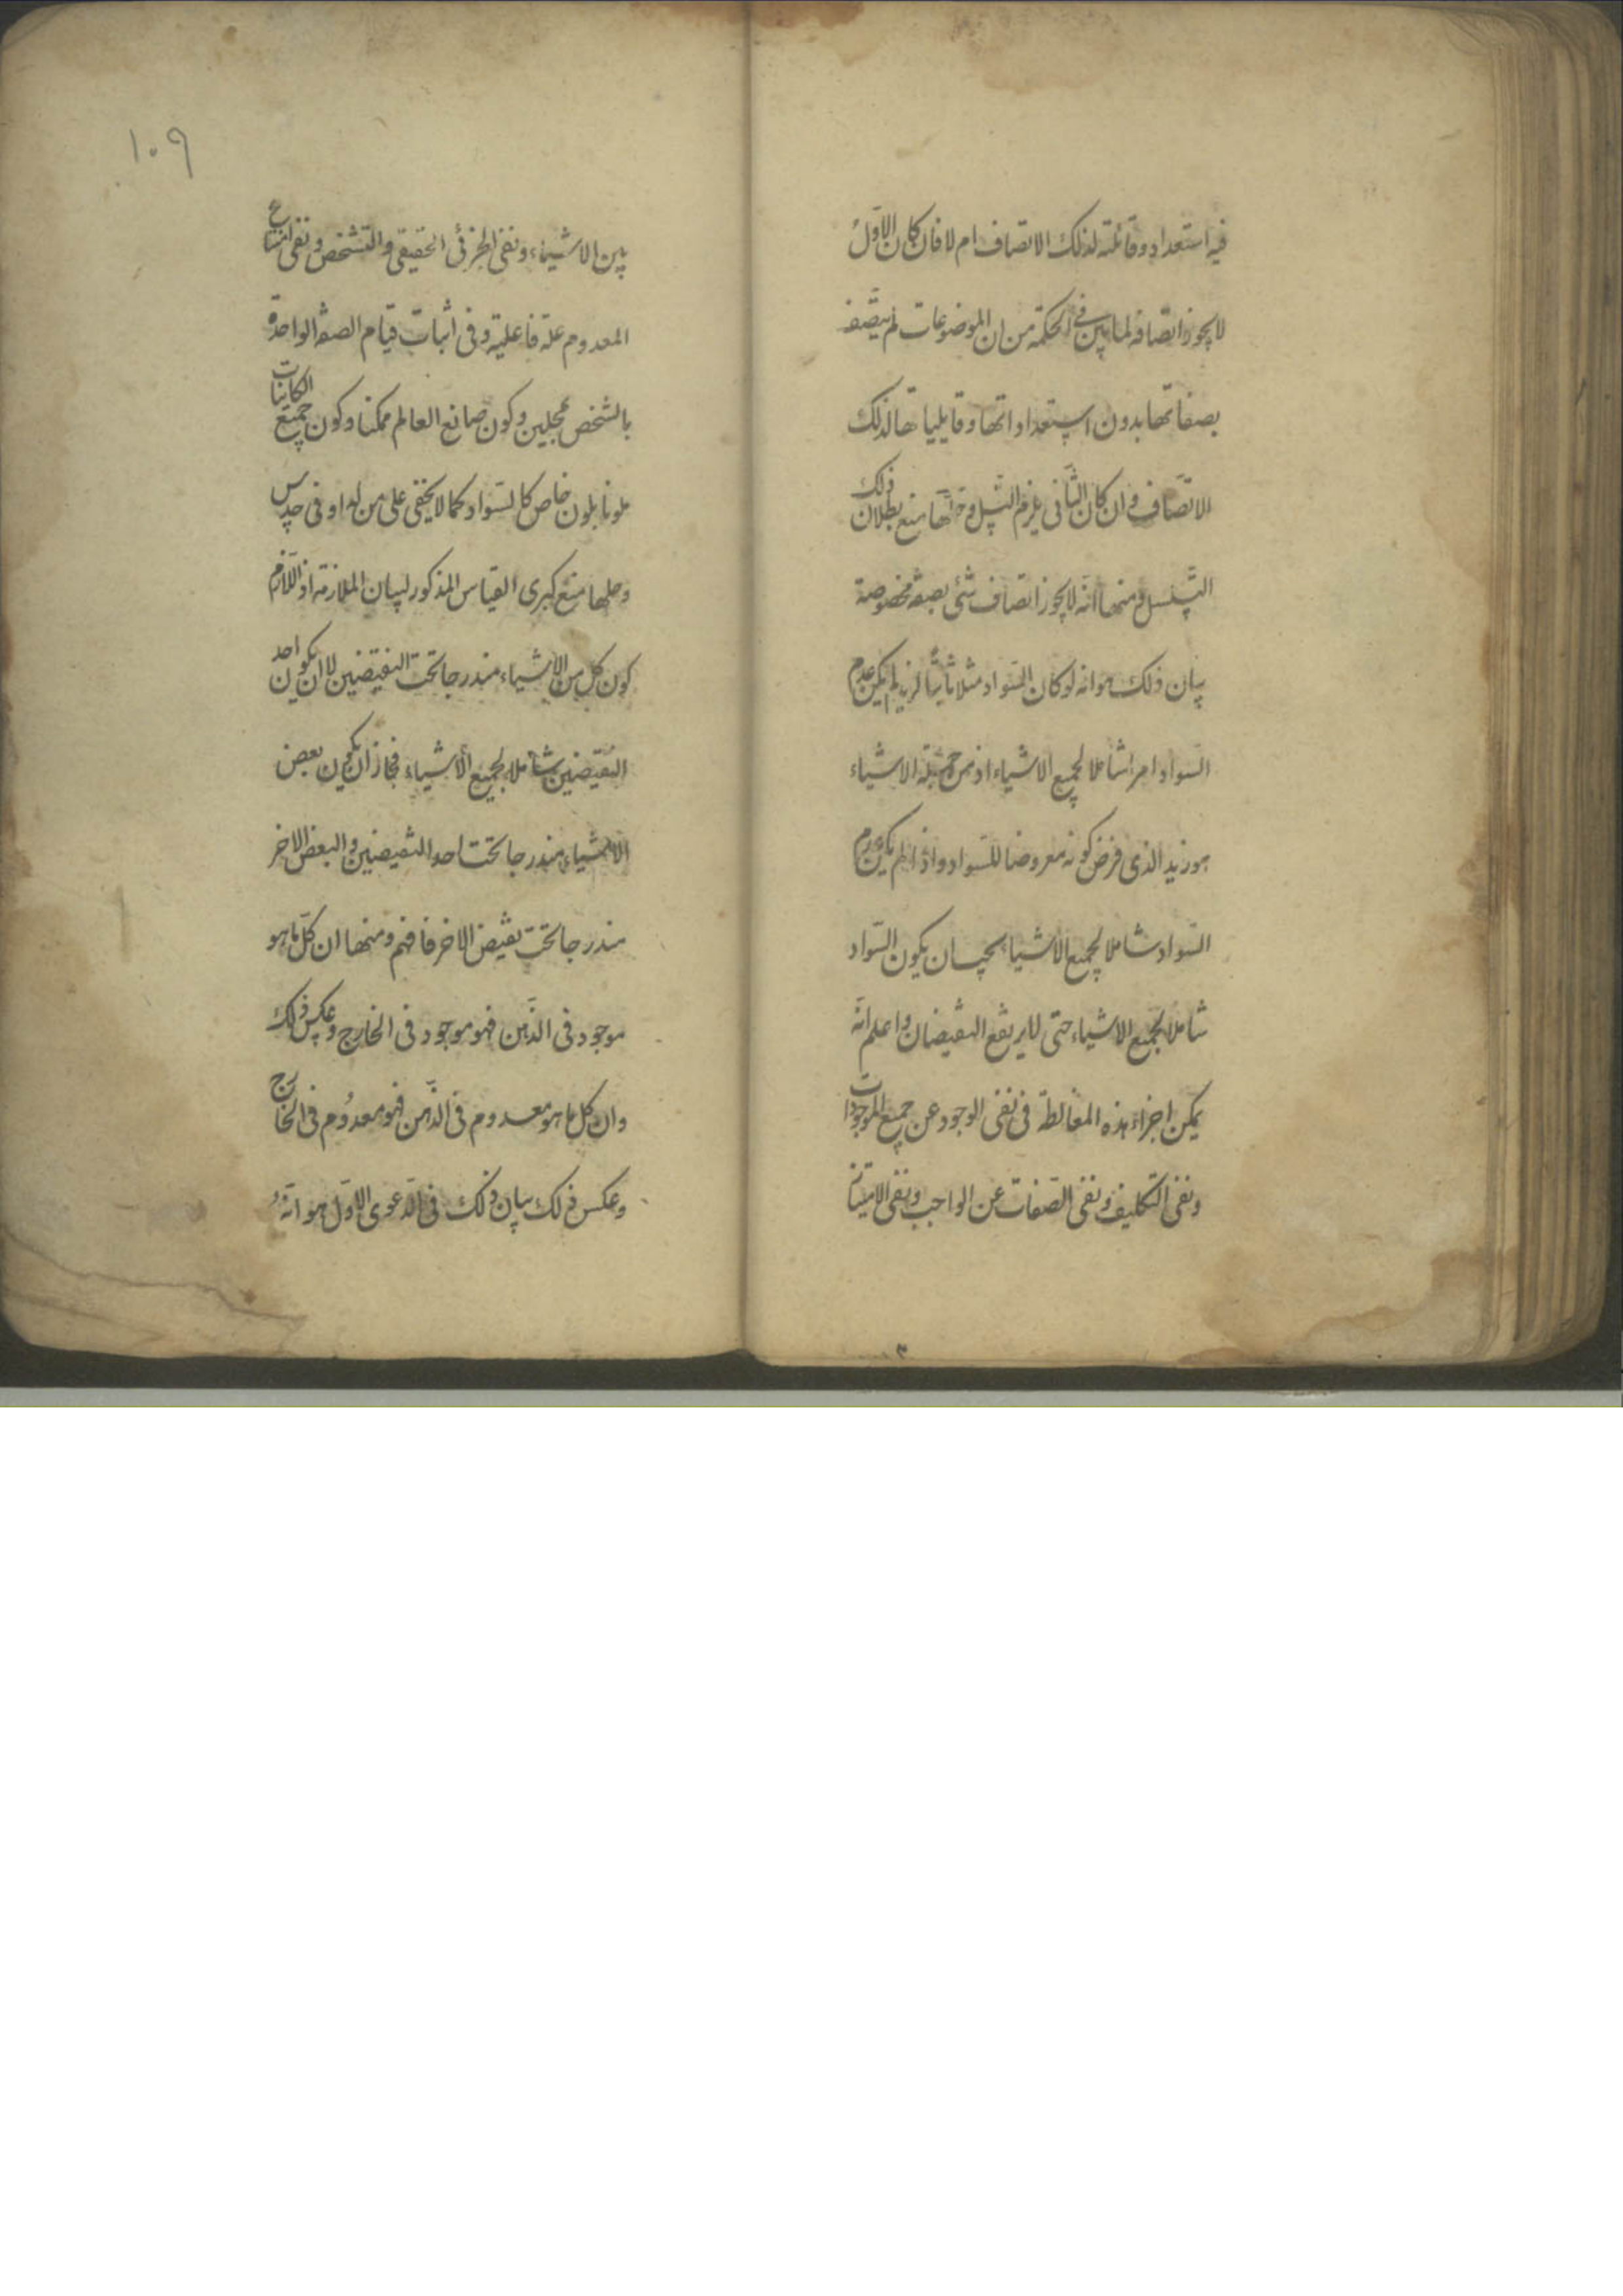 فيه استعداد وقابلية لذلك الاتصاف ام لا فان كان الاول
لا يجوز اتصافه لما بين في الحكمة من ان الموضوعات لم يتصف
بصفاتها بدون استعداداتها وقابلياتها لذلك
الاتصاف وان كان الثاني يلزم التسل وحلها منع بطلان ذلك
التسلسل ومنها انه لا يجوز اتصاف شئ بصفة مخصوصة
بيان ذلك هو انه لو كان السواد مثلا ثابتا لزيد لم يكن عدم
السواد امرا شاملا لجميع الاشياء اذ من جملة الاشياء
هو زيد الذى فرض كونه معروضا للسواد واذا لم يكن عدم
السواد شاملا لجميع الاشياء يجب ان يكون السواد
شاملا لجميع الاشياء حتى لا يرتفع النقيضان واعلم انه
يمكن اجراء هذه المغالطة فى نفى الوجود عن جميع الموجودات
ونفى التكليف ونفى الصفات عن الواجب ونفى الامتياز
١٠٩
بين الاشياء ونفى الجزئى الحقيقى والتشخص ونفى امتناع
المعدوم علة فاعلية وفى اثبات قيام الصفة الواحدة
بالشخص بمحلين وكون صانع العالم ممكنا وكون جميع الكاينات
ملونا بلون خاص كالسواد كما لا يخفى على من له ادنى حدس
وحلها منع كبرى القياس المذكور لبيان الملازمة اذ اللازم
كون كل من الاشياء مندرجا تحت النقيضين لا ان يكون احد
النقيضين شاملا لجميع الاشياء فجاز ان يكون بعض
الاشياء مندرجا تحت احد النقيضين والبعض الاخر
مندرجا تحت نقيض الاخر فافهم ومنها ان كل ما هو
موجود فى الذهن فهو موجود فى الخارج وعكس ذلك
وان كل ما هو معدوم فى الذهن فهو معدوم فى الخارج
وعكس ذلك بيان ذلك فى الدعوى الاول هو انه